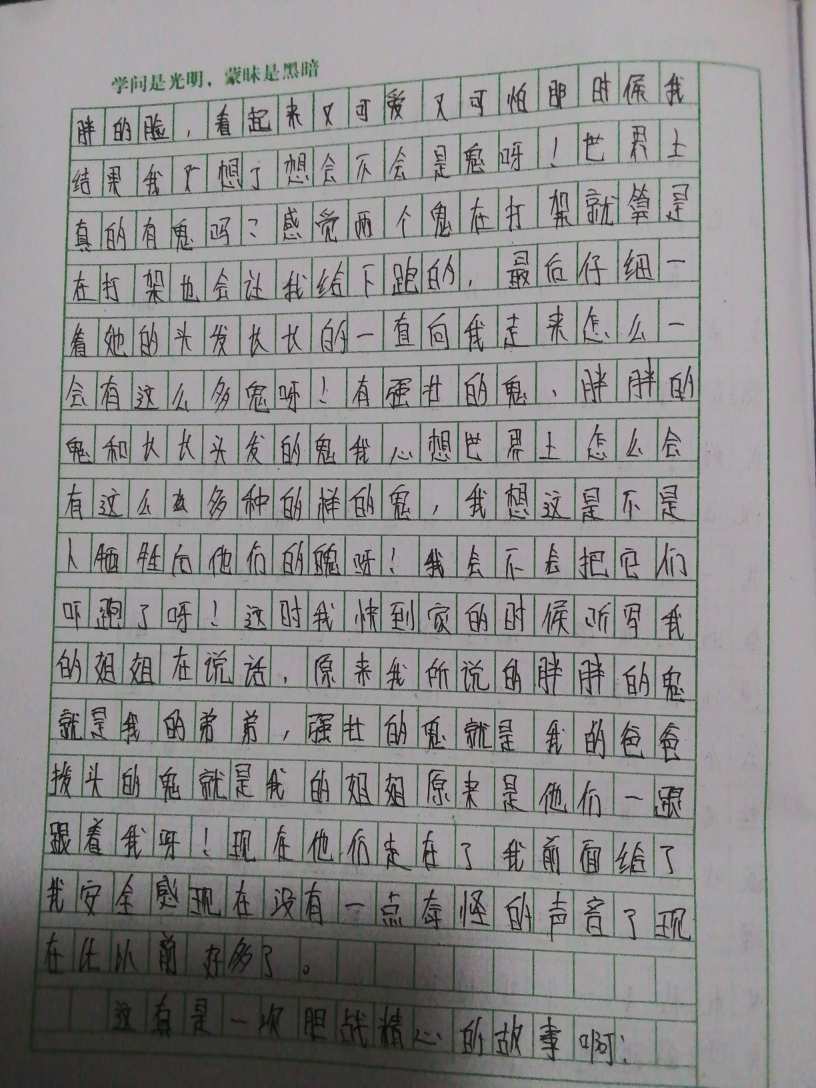 学问是光明，蒙昧是黑暗
胖的脸，看起来又可爱又可怕那时候我
结果我又想了想会不会是鬼呀！世界上
真的有鬼吗？感觉两个鬼在打架就算是
在打架也会让我给下跑的，最后仔细一
看她的头发长长的一直向我走来怎么一
会有这么多鬼呀！有强壮的鬼、胖胖的
鬼和长长头发的鬼我心想世界上怎么会
有这么多种的样的鬼，我想这是不是
人牺牲向他们的魄呀！我会不会把它们
吓跑了呀！这时我快到家的时候听写我
的姐姐在说话，原来我所说的胖胖的鬼
就是我的弟弟，强壮的鬼就是我的爸爸
拨头的鬼就是我的姐姐原来是他们一跟
跟着我呀！现在他们走在了我前面给了
我安全感现在没有一点奇怪的声音了现
在比以前好多了。
这真是一次胆战精心的故事啊！